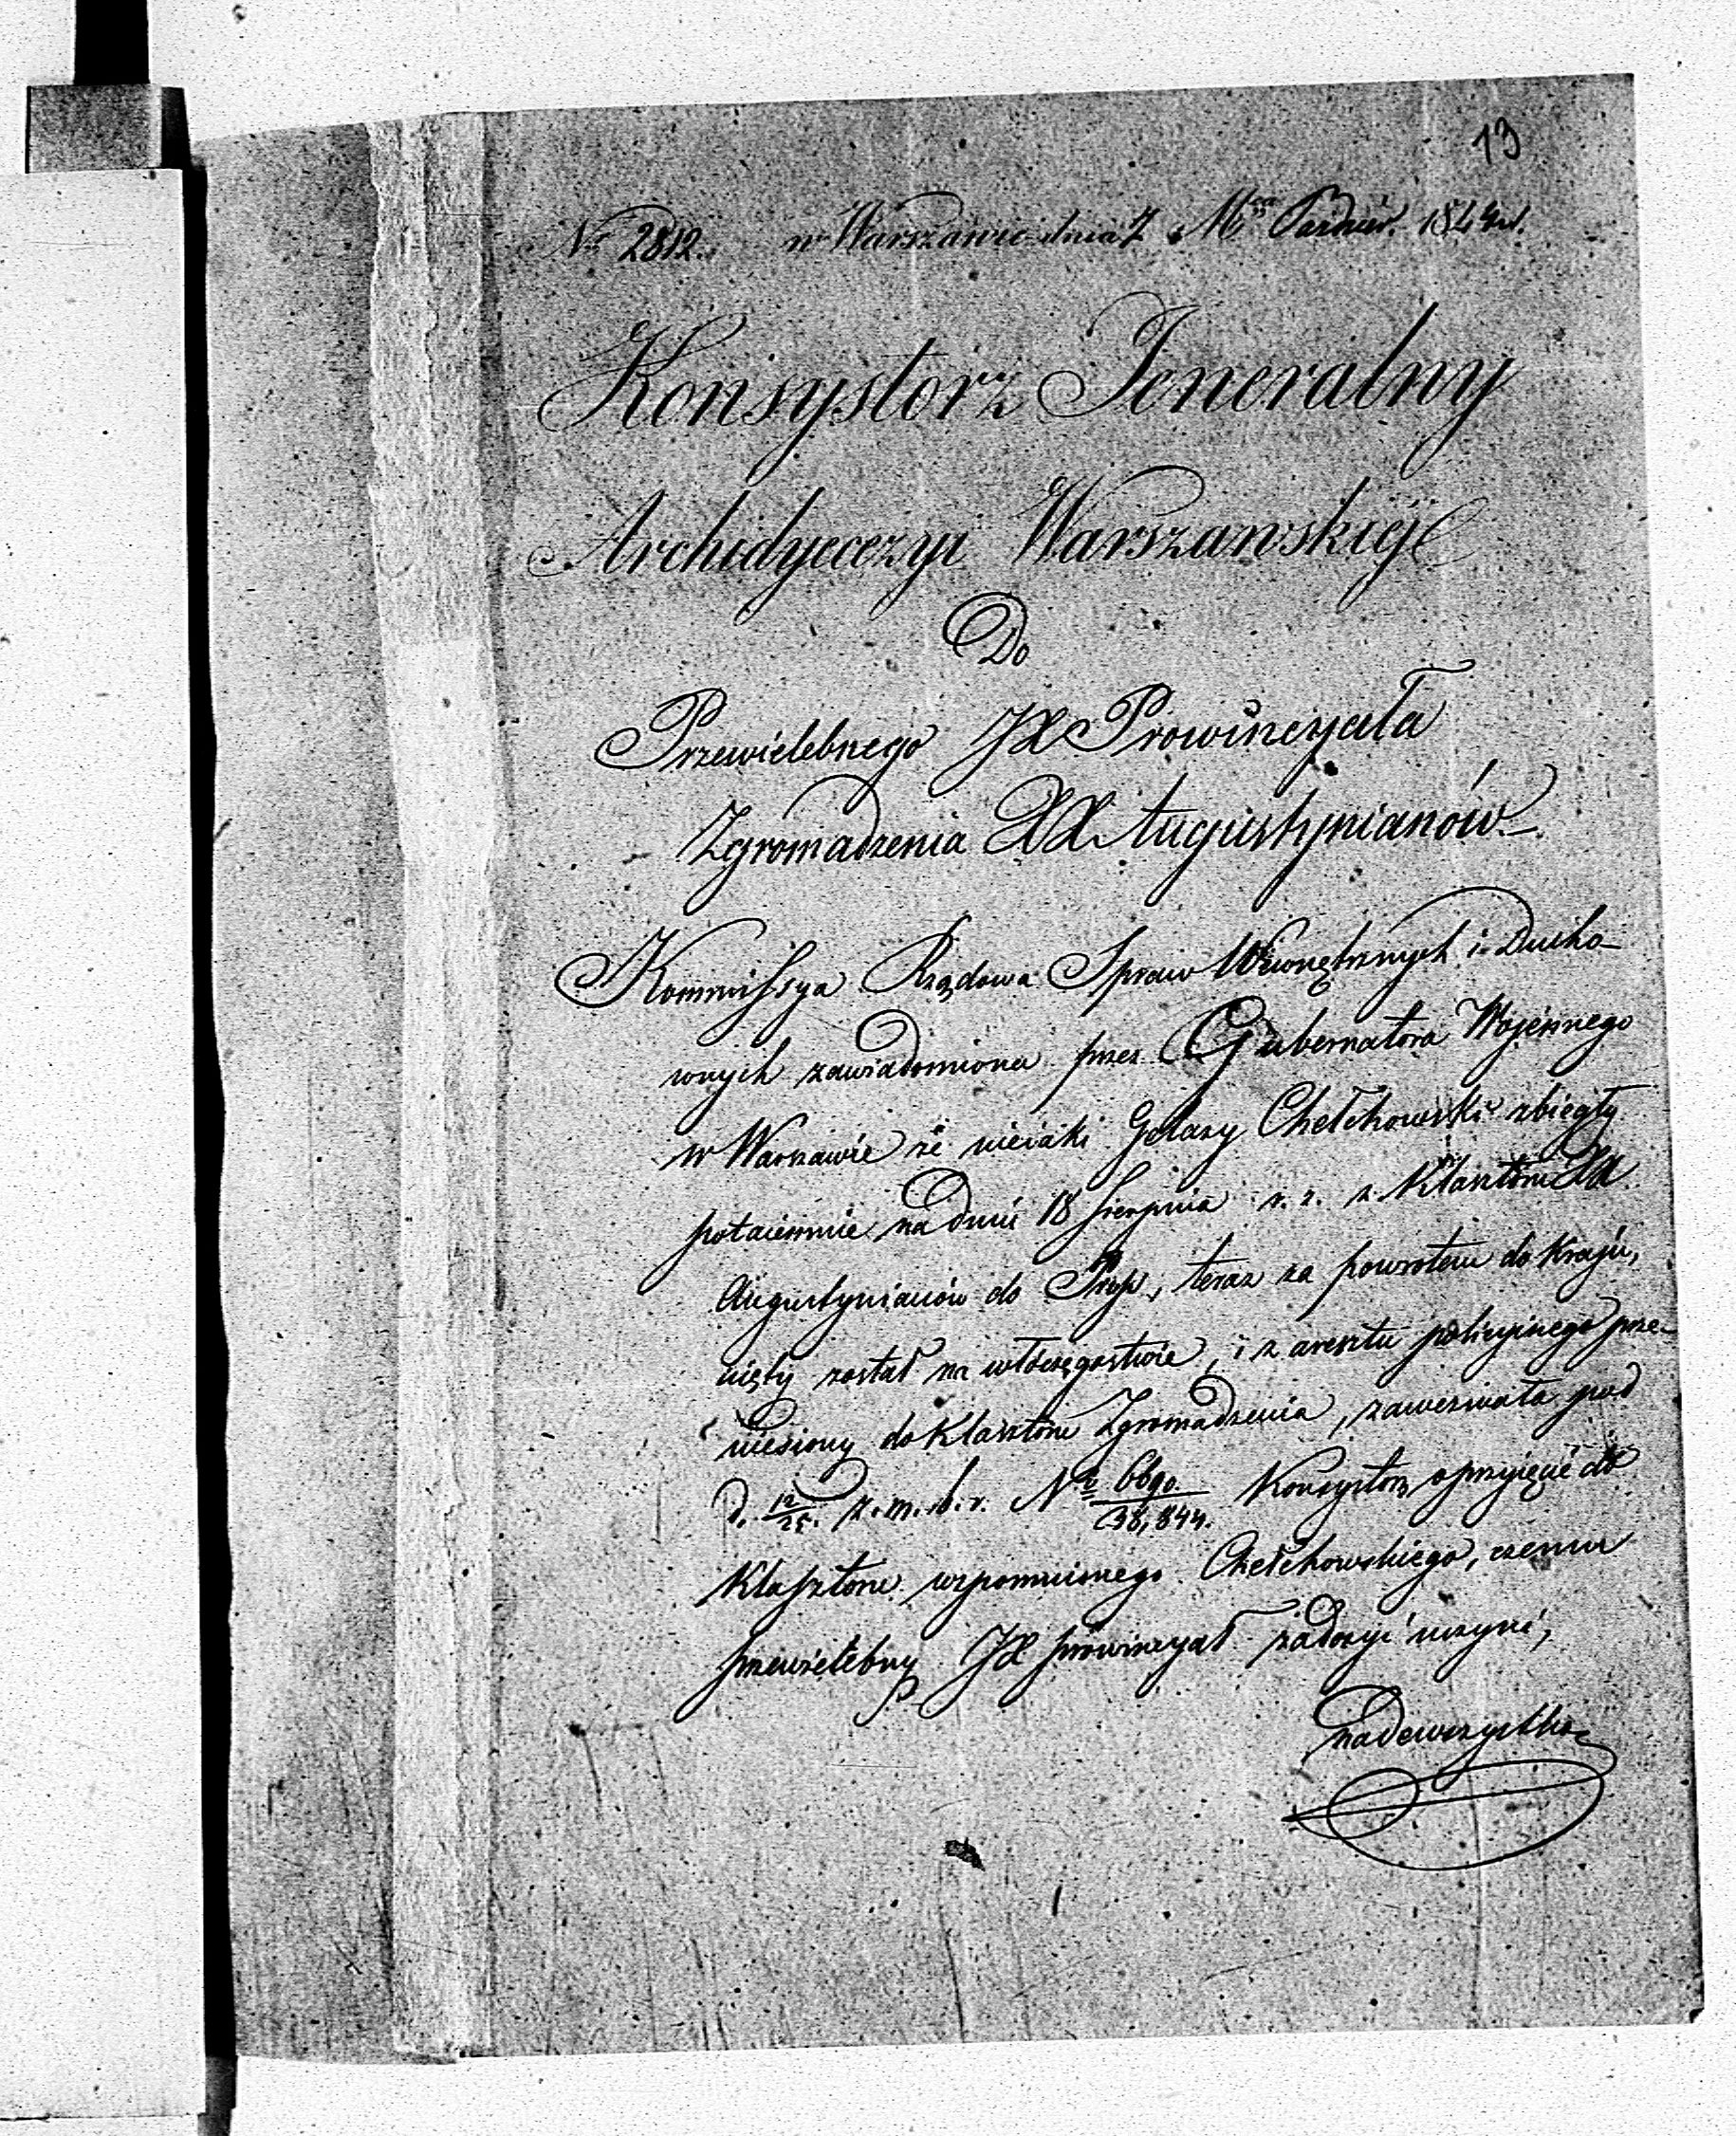 13
No 2812. w Warszawie dnia 7 Mca Paździer. 1844 r.
Konsystorz Jeneralny
Archidyecezyi Warszawskiéj
Do
Przewielebnego JX Prowincyała
Zgromadzenia XX Augustynianów
Kommissya Rządowa Spraw Wewnętrznych i Ducho-
wnych zawiadomiona przez Gubernatora Wojennego
w Warszawie że niejaki Gelazy Chełchowski zbiegły
potaiemnie na dniu 18 Sierpnia r. z. z Klasztoru XX
Augustynianów do Prus, teraz za powrotem do Kraju,
ujęty został na włóczęgostwie, i z aresztu policyjnego prze-
niesiony do Klasztoru Zgromadzenia, zawezwała pod
d. 12/25. z. m. b. r. No 6690/38,844. Konsystorz o przyjęcie do
Klasztoru wspomnionego Chełchowskiego, czemu
przewielebny JX prowincyał zadosyć uczyni,
nadewszystko